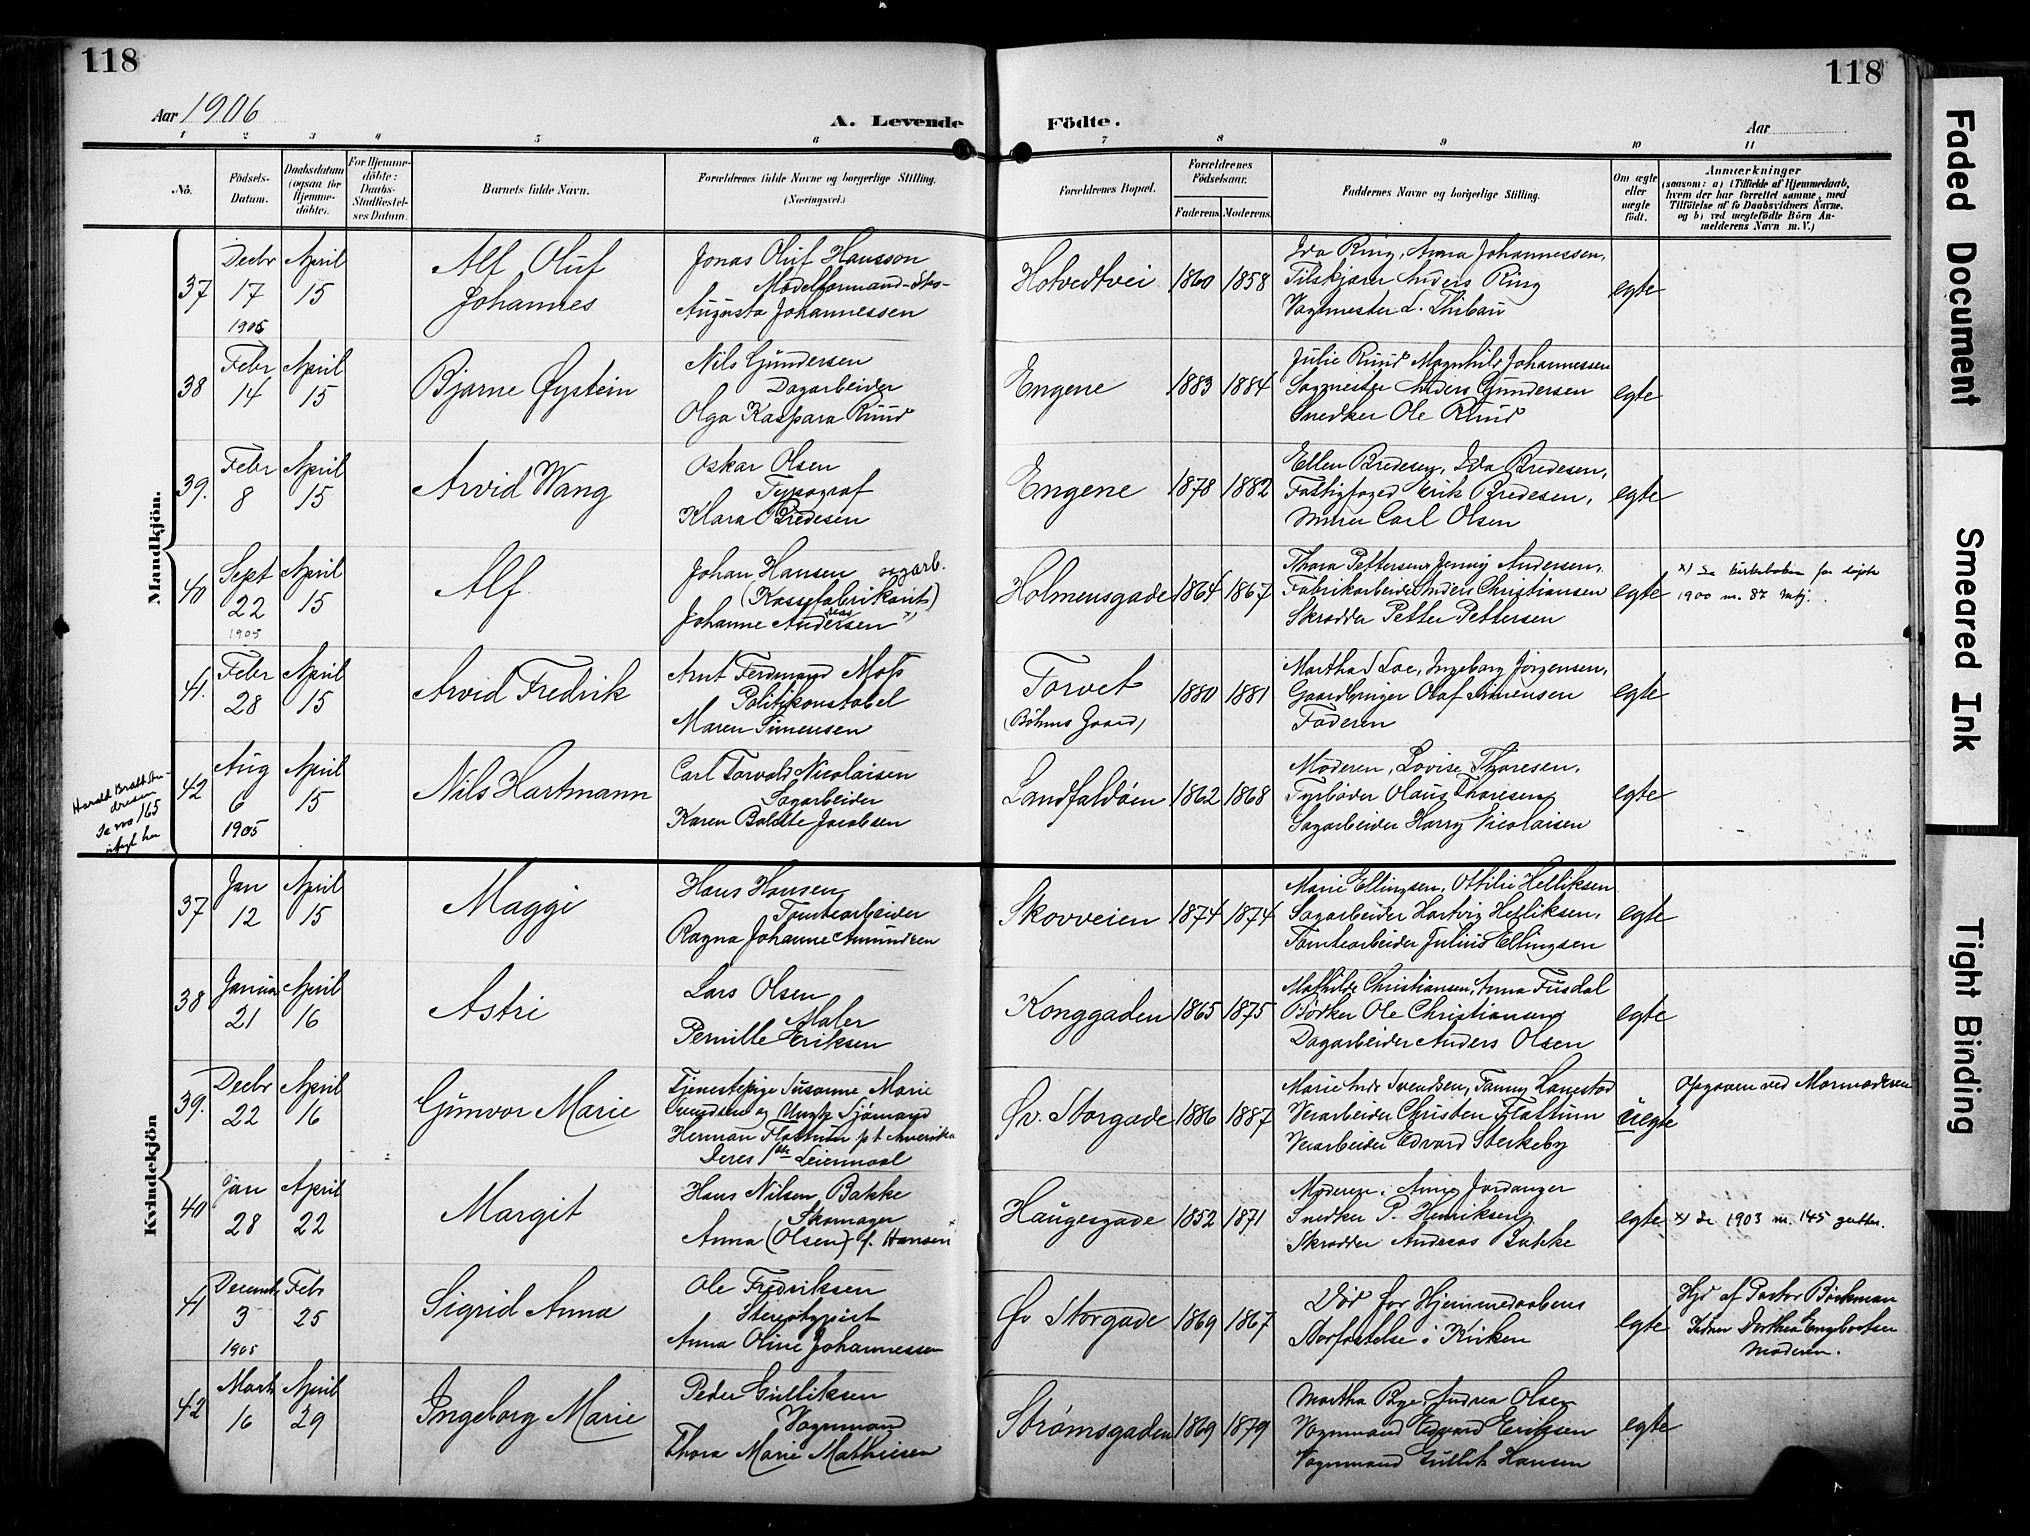 118
118
Aar 1906
A. Levende Födte.
Aar
1 2 3 4 5 6 7 8 9 10 11
No.
Födsels-Datum.
Daabsdatum (ogsaa for Hjemmedöbte).
For Hjemmedöbte: Daabs-Stadfæstelses Datum.
Barnets fulde Navn.
Forældrenes fulde Navne og borgerlige Stilling. (Næringsvei.)
Forældrenes Bopæl.
Forældrenes Födselsaar.
Faderens. Moderens.
Faddernes Navne og borgerlige Stilling.
Om ægte eller uægte födt.
Anmærkninger
(saasom: a) i Tilfælde af Hjemmedaab, hvem der har forrettet samme, med Tilföielse af to Daabsvidners Navne, og b) ved uægtefödte Börn Anmelderens Navn m. V.)
Mandkjön.
37 Decbr 17 1905 April 15
Alf Oluf Johannes
Jonas Oluf Hansson
Augusta Johannessen
Hotvedtvei 1860 1858
Ida Ring, Anna Johannessen,
Anders Ring
Vagtmester L. Thibau
egte
38 Febr 14 April 15
Bjarne Øystein
Nils Gundersen
Dagarbeider
Olga Kaspara Ruud
Engene 1883 1884
Julie Ruud Magnhild Johannessen
Sagmester Anders Gundersen
Snedker Ole Ruud
egte
39. Febr 8 April 15
Arvid Wang
Oskar Olsen
Typograf
Klara Bredesen
Engene 1878 1882
Ellen Bredesen, Ida Bredesen,
Fattigfoged Erik Bredesen,
Murer Carl Olsen
egte
40 Sept 22 1905 April 15
Alf
Johan Hansen
(Kassefabrikant)
Johanne Andersen x)
Holmensgade 1864 1867
Thora Pettersen, Jenny Andersen,
Fabrikarbeider Anders Christiansen
Skrædder Petter Pettersen
egte
x) Se Kirkeboken for døpte
1900 nr. 87
41. Febr 28 April 15
Arvid Fredrik
Arnt Ferdinand Moss
Politikonstabel
Maren Simensen
Torvet
(Bøhms Gaard)
1880 1881
Martha Loe, Ingeborg Jörgensen,
Gaardbruger Olaf Simensen
Faderen
egte
42 Aug 6 1905 April 15
Nils Hartmann
Carl Torvald Nicolaisen
Sagarbeider
Karen Jacobsen
Landfaldöen 1862 1868
Moderen, Lovise Thoresen,
Fyrböder Olaus Thoresen
Sagarbeider Harry Nicolaisen
egte
Harald
Se no 165
Kvindekjön
37 Jan 12 April 15
Maggi
Hans Hansen
Tomtearbeider
Ragna Johanne Amundsen
Skovveien 1874 1874
Marie Ellingsen, Ottilie Helliksen
Sagarbeider Hartvig Helliksen,
Tomtearbeider Julius Ellingsen
egte
38 Januar 21 April 16
Astri
Lars Olsen
Maler
Pernille Eriksen
Konggaden 1865 1875
Mathilde Christiansen, Anna Fusdal
Bödker Ole Christiansen
Dagarbeider Anders Olsen
egte
39. Decbr 22 April 16
Gunvor Marie
Tjenestepige Susanne Marie
Svendsen og Ungk Sjömand
Herman Flattum p.t. Amerika
Deres 1ste Leiermaal
Øv. Storgade 1886 1887
Marie Svendsen, Fanny Hanestad
Verarbeider Christen Flattum
Verarbeider Edvard Sterkeby
uegte
Opgaven ved Mormoderen
40 Jan 28 April 22
Margit
Hans Nilsen Bakke
Skomager
Anna (Olsen) f. Hansen x
Haugesgade 1852 1871
Moderen,
Snedker P. Henriksen
Skrædder Andreas Bakke
egte
x) Se 1903 nr. 145 gutter.
41 Decemb. 3 1905 Febr 25
Sigrid Anna
Ole Fredriksen
Stereotypist
Anna Oline Johannessen
Øv Storgade 1869 1867
Död for Hjemmedaabens
Stadfæstelse i Kirken
egte
Hjd af Pastor Böckman
Dorthea Engebretsen
Moderen.
42 Marts 16 April 29
Ingeborg Marie
Peder Gulliksen
Vognmand
Thora Marie Mathiesen
Strömsgaden 1869 1879
Martha Bye, Andrea Olsen
Vognmand Edvard Eriksen
Vognmand Gullik Hansen
egte
Faded Document
Smeared Ink
Tight Binding